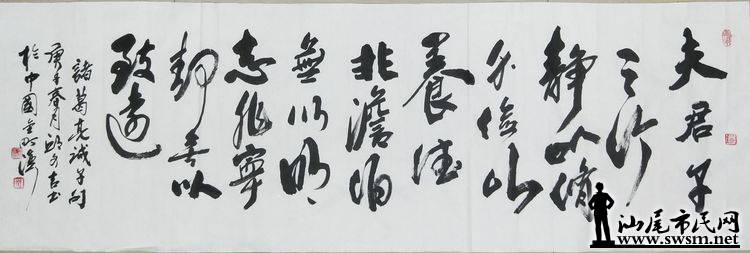 夫君子
之行
静以脩
身儉以
養德
非澹泊
無以明
志非寧
静無以
致遠
諸葛亮诫子句
庚子春月
於中國
汕尾市民网
www.swsm.net